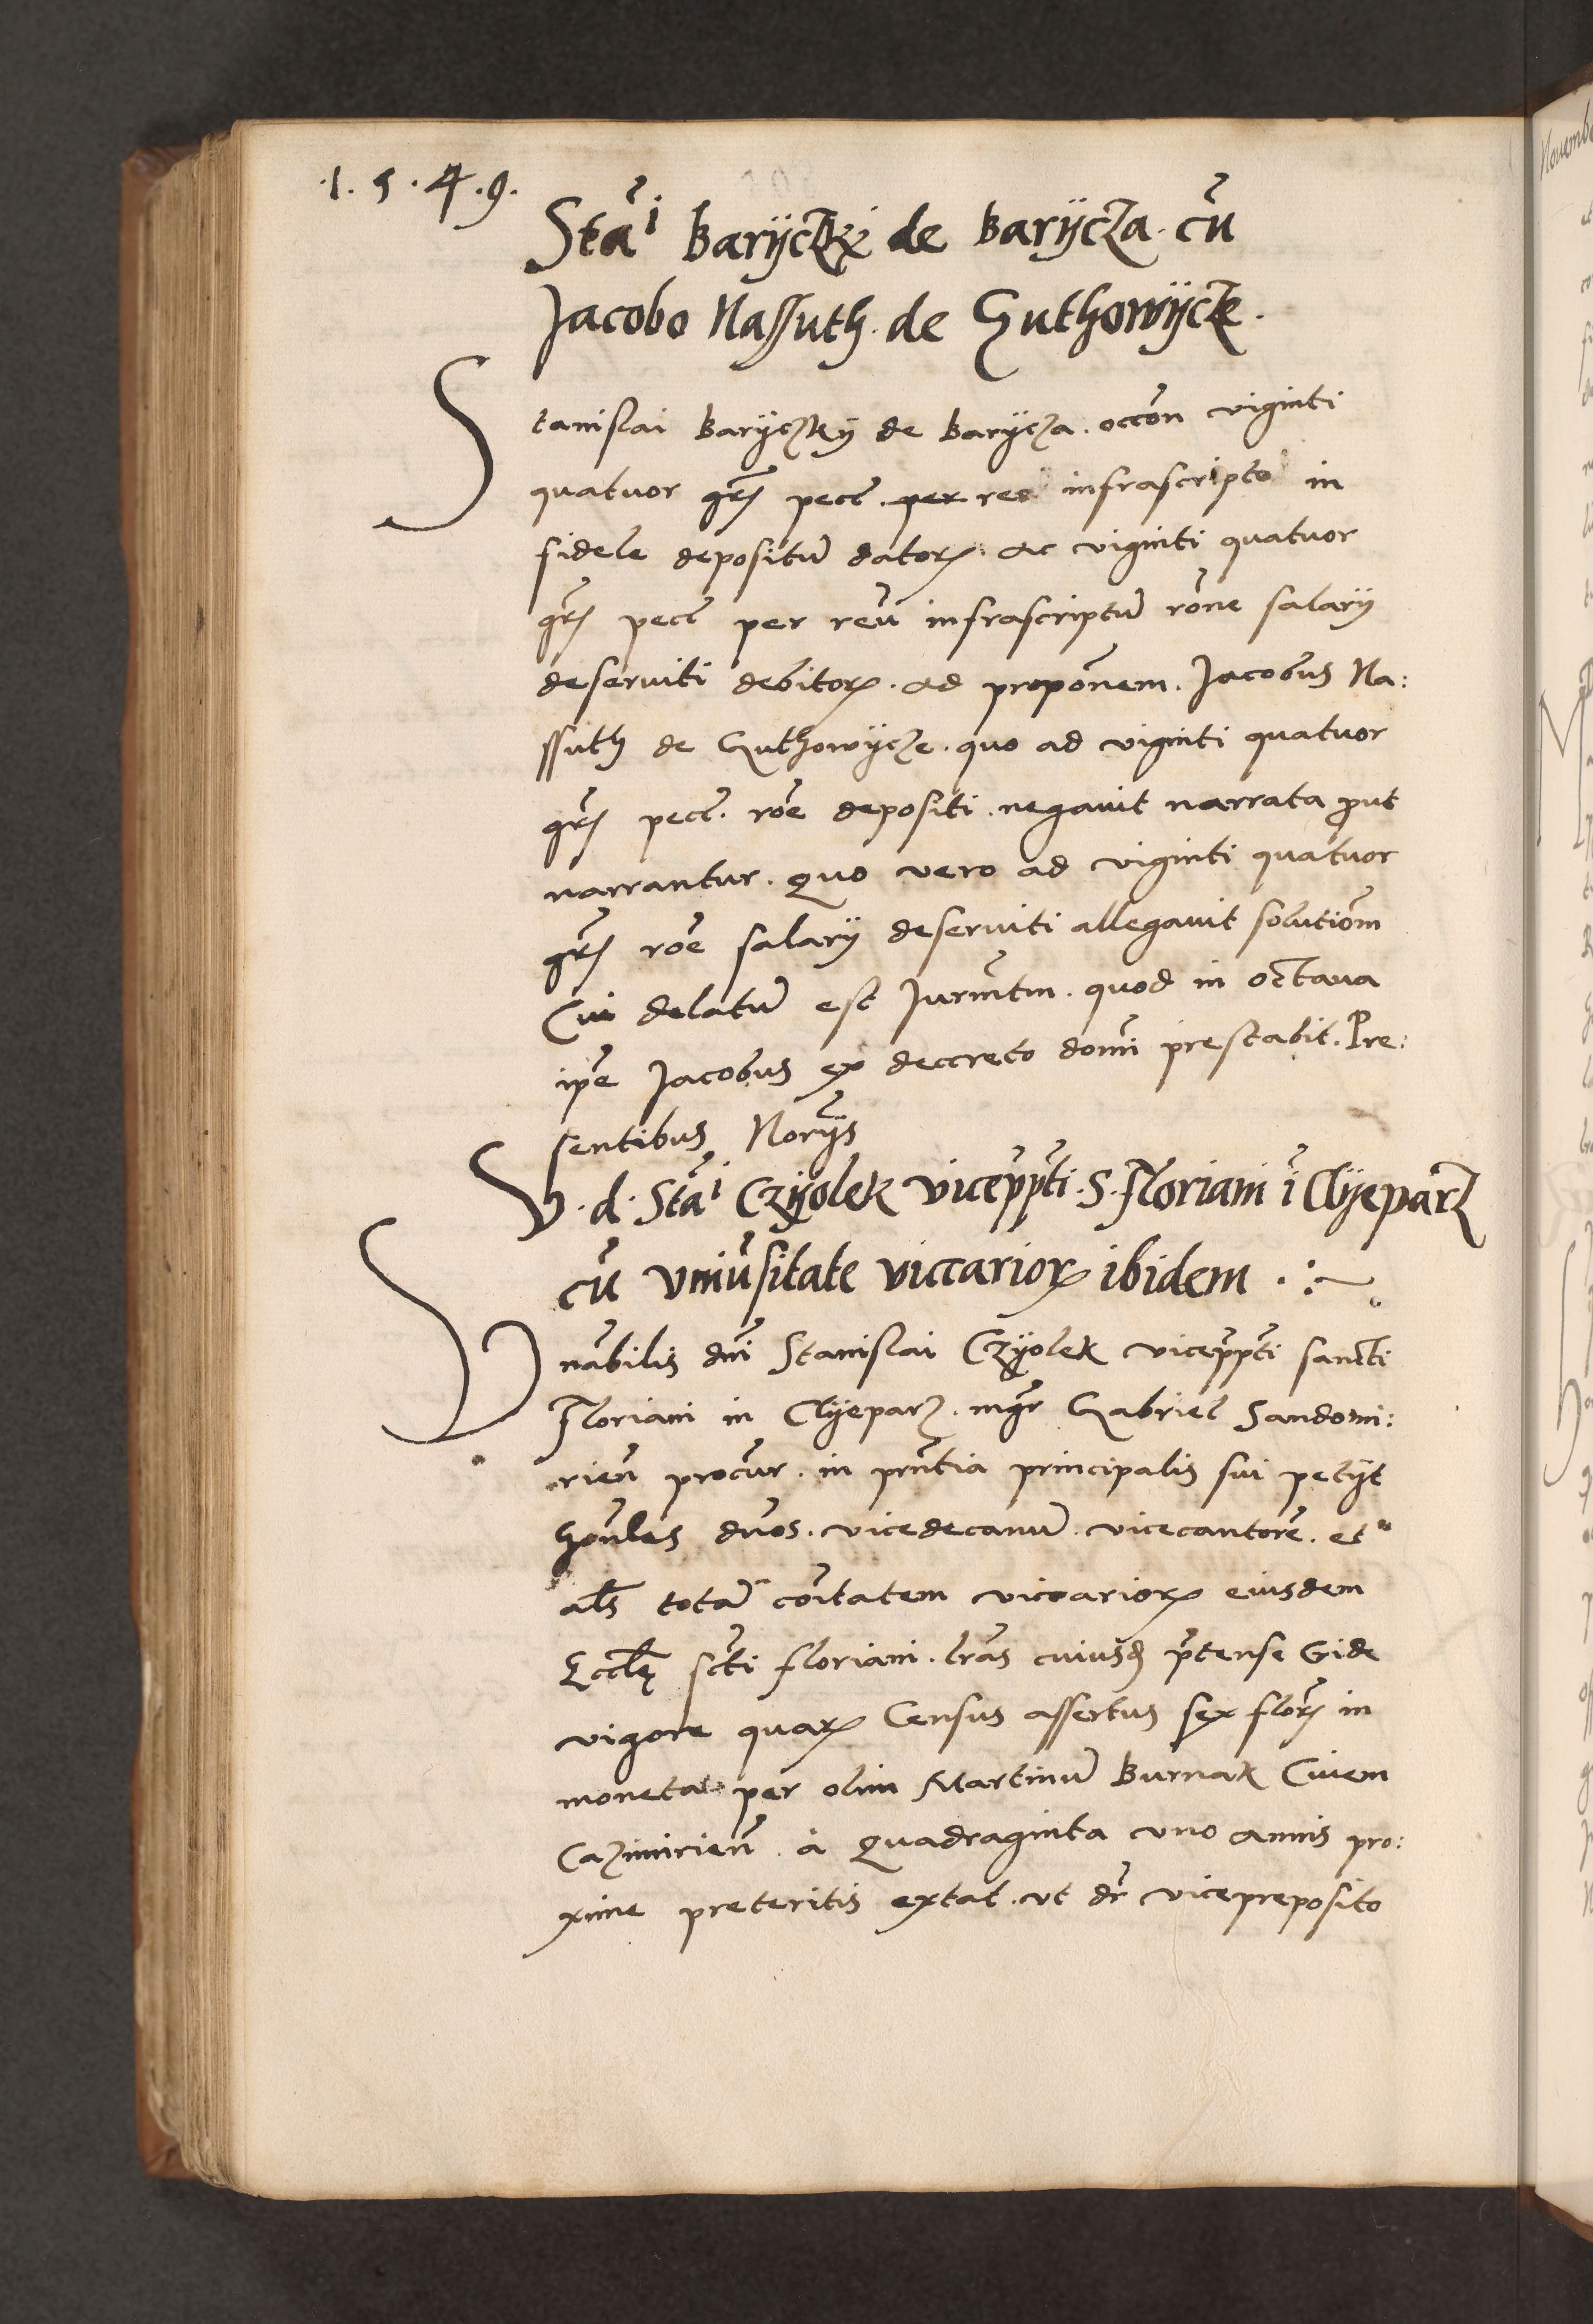 .1.5.4.9.
Stãi Baryczkj de Barycza. cũ
Jacobo Nassuth. de Guthowycze.
Stanislai Baryczky de Barycza. occõn viginti
quatuor gr̃ pect̃. per reo infrascripto in
fidele depositũ datorꝝ. ac viginti quatuor
gr̃ pect̃ per reũ infrascriptũ rõne salarij
deserviti debitorꝝ. ad propõnem. Jacobus Na:
ssuth de Guthowycze. quo ad viginti quatuor
gr̃ pect̃. rõe depositi. negauit narrata ꝓut
narrantur. Quo vero ad viginti quatuor
gr̃ rõe salarij deserviti allegauit solutiõm
Cui delatũ est Jurm̃tm. quod in octaua
ip̃e Jacobus ex deccreto domĩ prestabit. Pre:
sentibus Norỹs
V. d. Stãi Czyolek vicepp̃ti. S. Floriani ĩ Clyeparz
cũ vniũsitate viccariorꝝ ibidem .:~
Vnãbilis dnĩ Stanislai Czyolek vicepp̃ti sancti
Floriani in Clyeparz. mgr̃ Gabriel Sandomi:
rieñ procur̃. in prñtia principalis sui petijt
hoñles dnõs. vicedecanũ. vicecantorẽ. et
al̃s totã cõitatem viccariorꝝ eiusdem
Eccl̃ę sct̃i floriani. lr̃as cuiusd̃ p̃tense Gide
vigore quarꝝ Census assertus sex flor̃ in
moneta per olim Martinũ Burnak Ciuem
Cazimirieñ. à Quadraginta vno annis pro:
xime preteritis extat. vt dr̃ vicepreposito